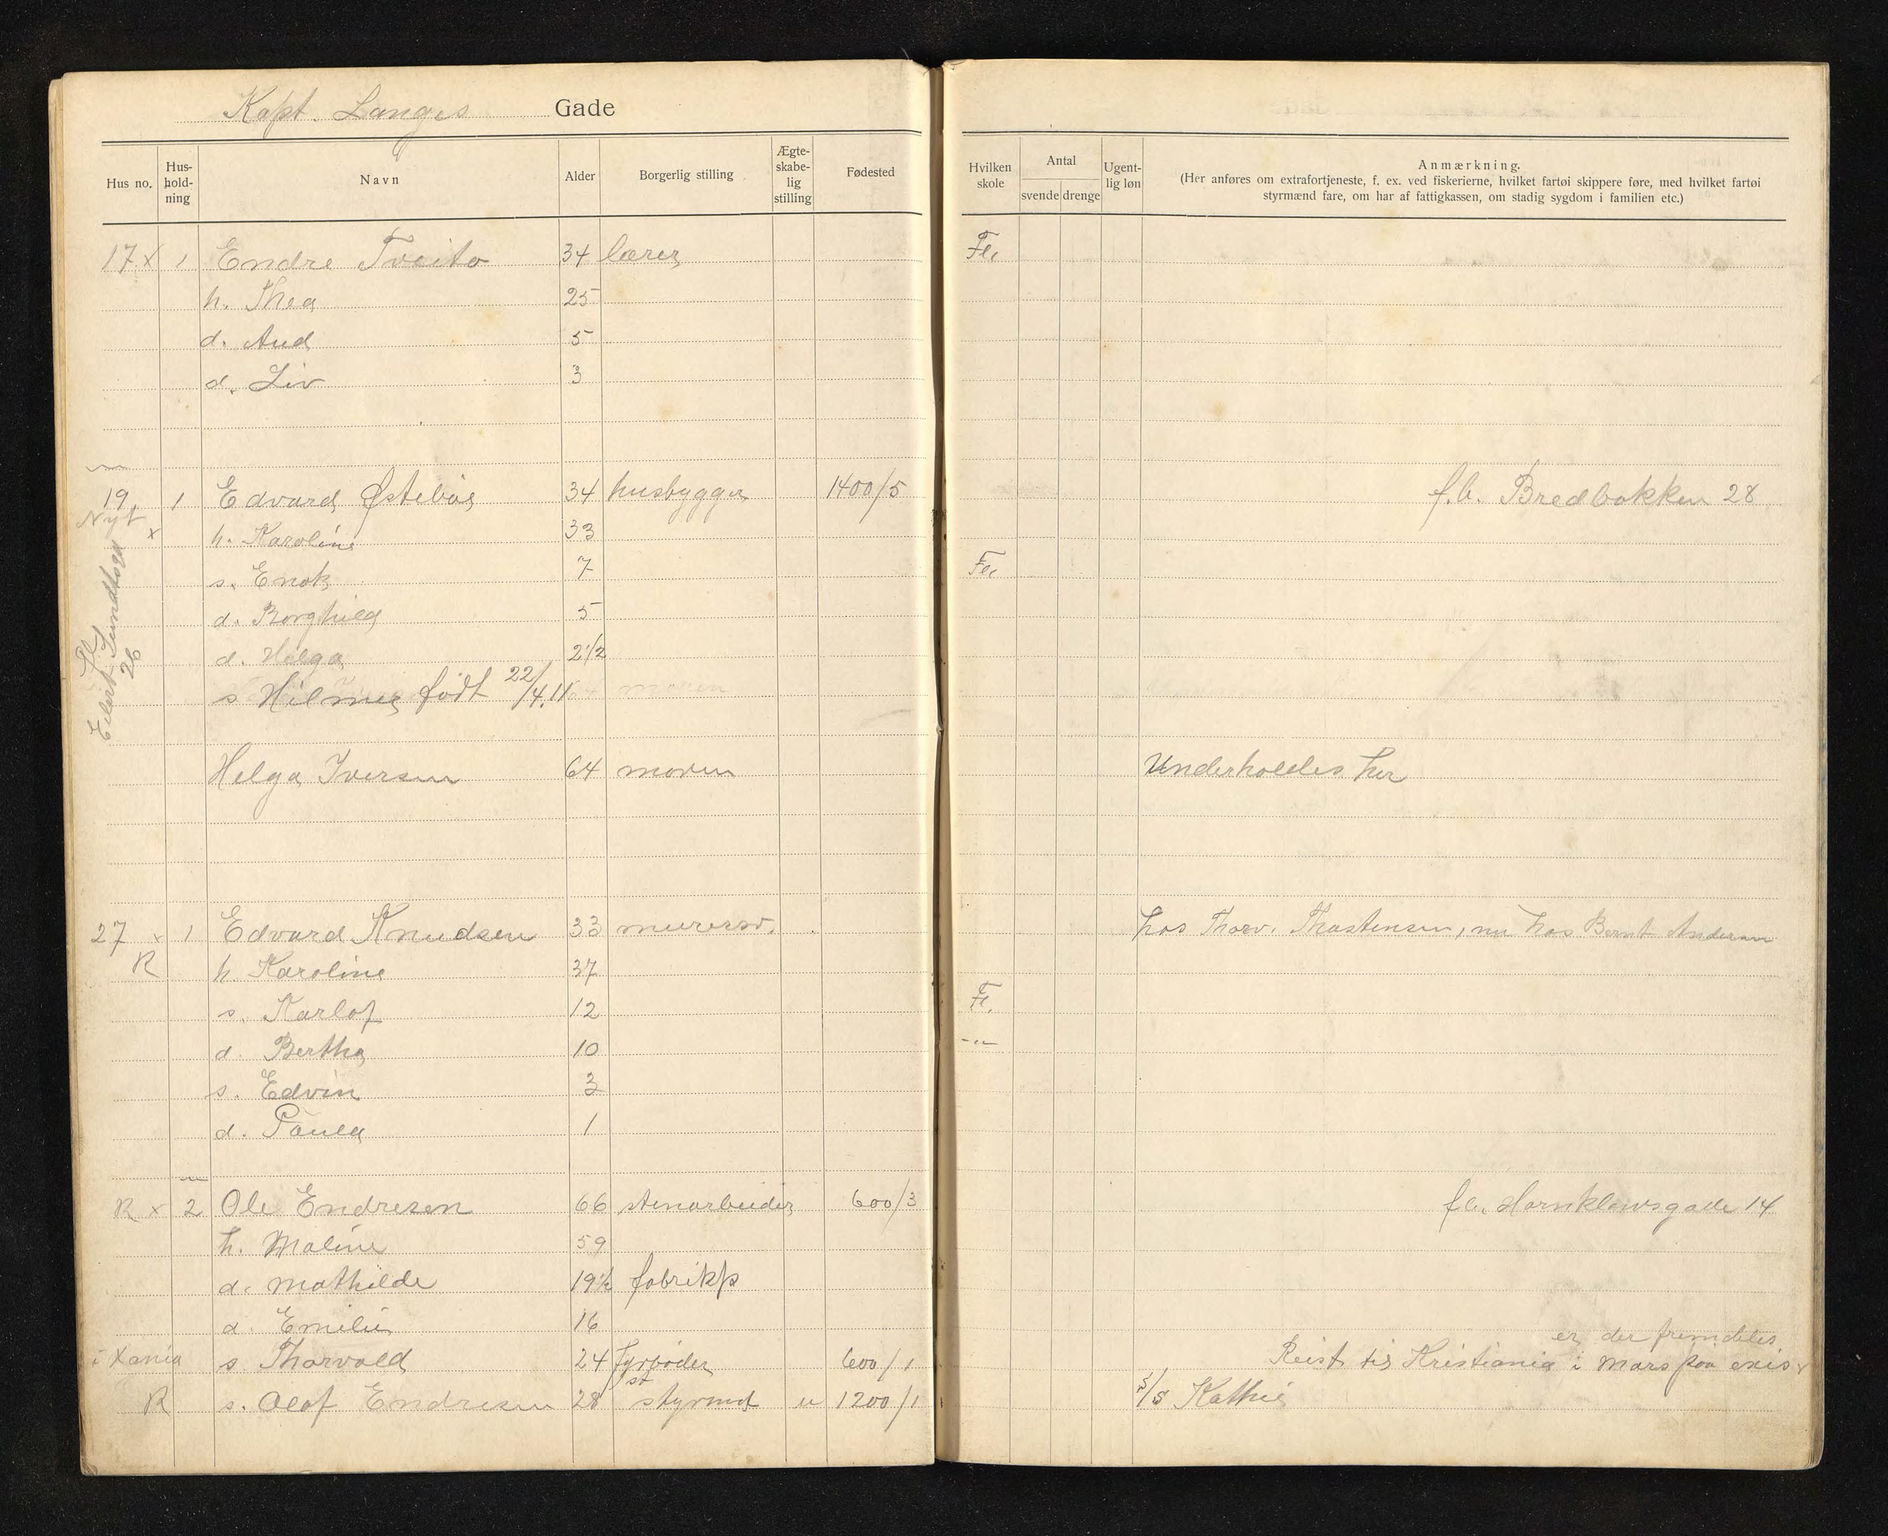 Kapt. Langes Gade
Hus no. Hus-hold-ning Navn Alder Borgerlig stilling Ægte-skabe-lig stilling Fødested Hvilken skole Antal svende drenge Ugent-lig løn Anmærkning.
(Her anføres om extrafortjeneste, f. ex. ved fiskerierne, hvilket fartøi skippere føre, med hvilket fartøi
styrmænd fare, om har af fattigkassen, om stadig sygdom i familien etc.)
17 x 1 Endre Tveito 34 lærer Fl.
h. Thea 25
d. Aud 5
d. Liv 3
19 1 Edvard Østebøe 34 husbygger 1400/5 f.b. Bredbakken 28
Nyt x h. Karoline 33
s. Enok 7 Fl.
d. Borghild 5
d. Helga 2 1/2
s Hilmer født 22/4.11
Eilert Sundtsgd 26
Helga Iversen 64 moren Underholdes her
27 x 1 Edvard Knudsen 33 murersv. hos Thorv. Thastensen, nu hos Bernt Andersen
R h Karoline 37
s. Karlof 12 Fl.
d. Bertha 10 -"-
s. Edvin 3
d. Paula 1
R x 2 Ole Endresen 66 stenarbeider 600/3 f.b. Hornklowsgade 14
h. Maline 59
d. Mathilde 19 1/2 fabrikp
d. Emilie 16
er der fremdeles
i Xania s Thorvald 24 fyrbøder 600/1 Reist til Kristiania i Mars paa
R s. Olaf Endresen 28 st styrmd u 1200/1 S/S Kathie